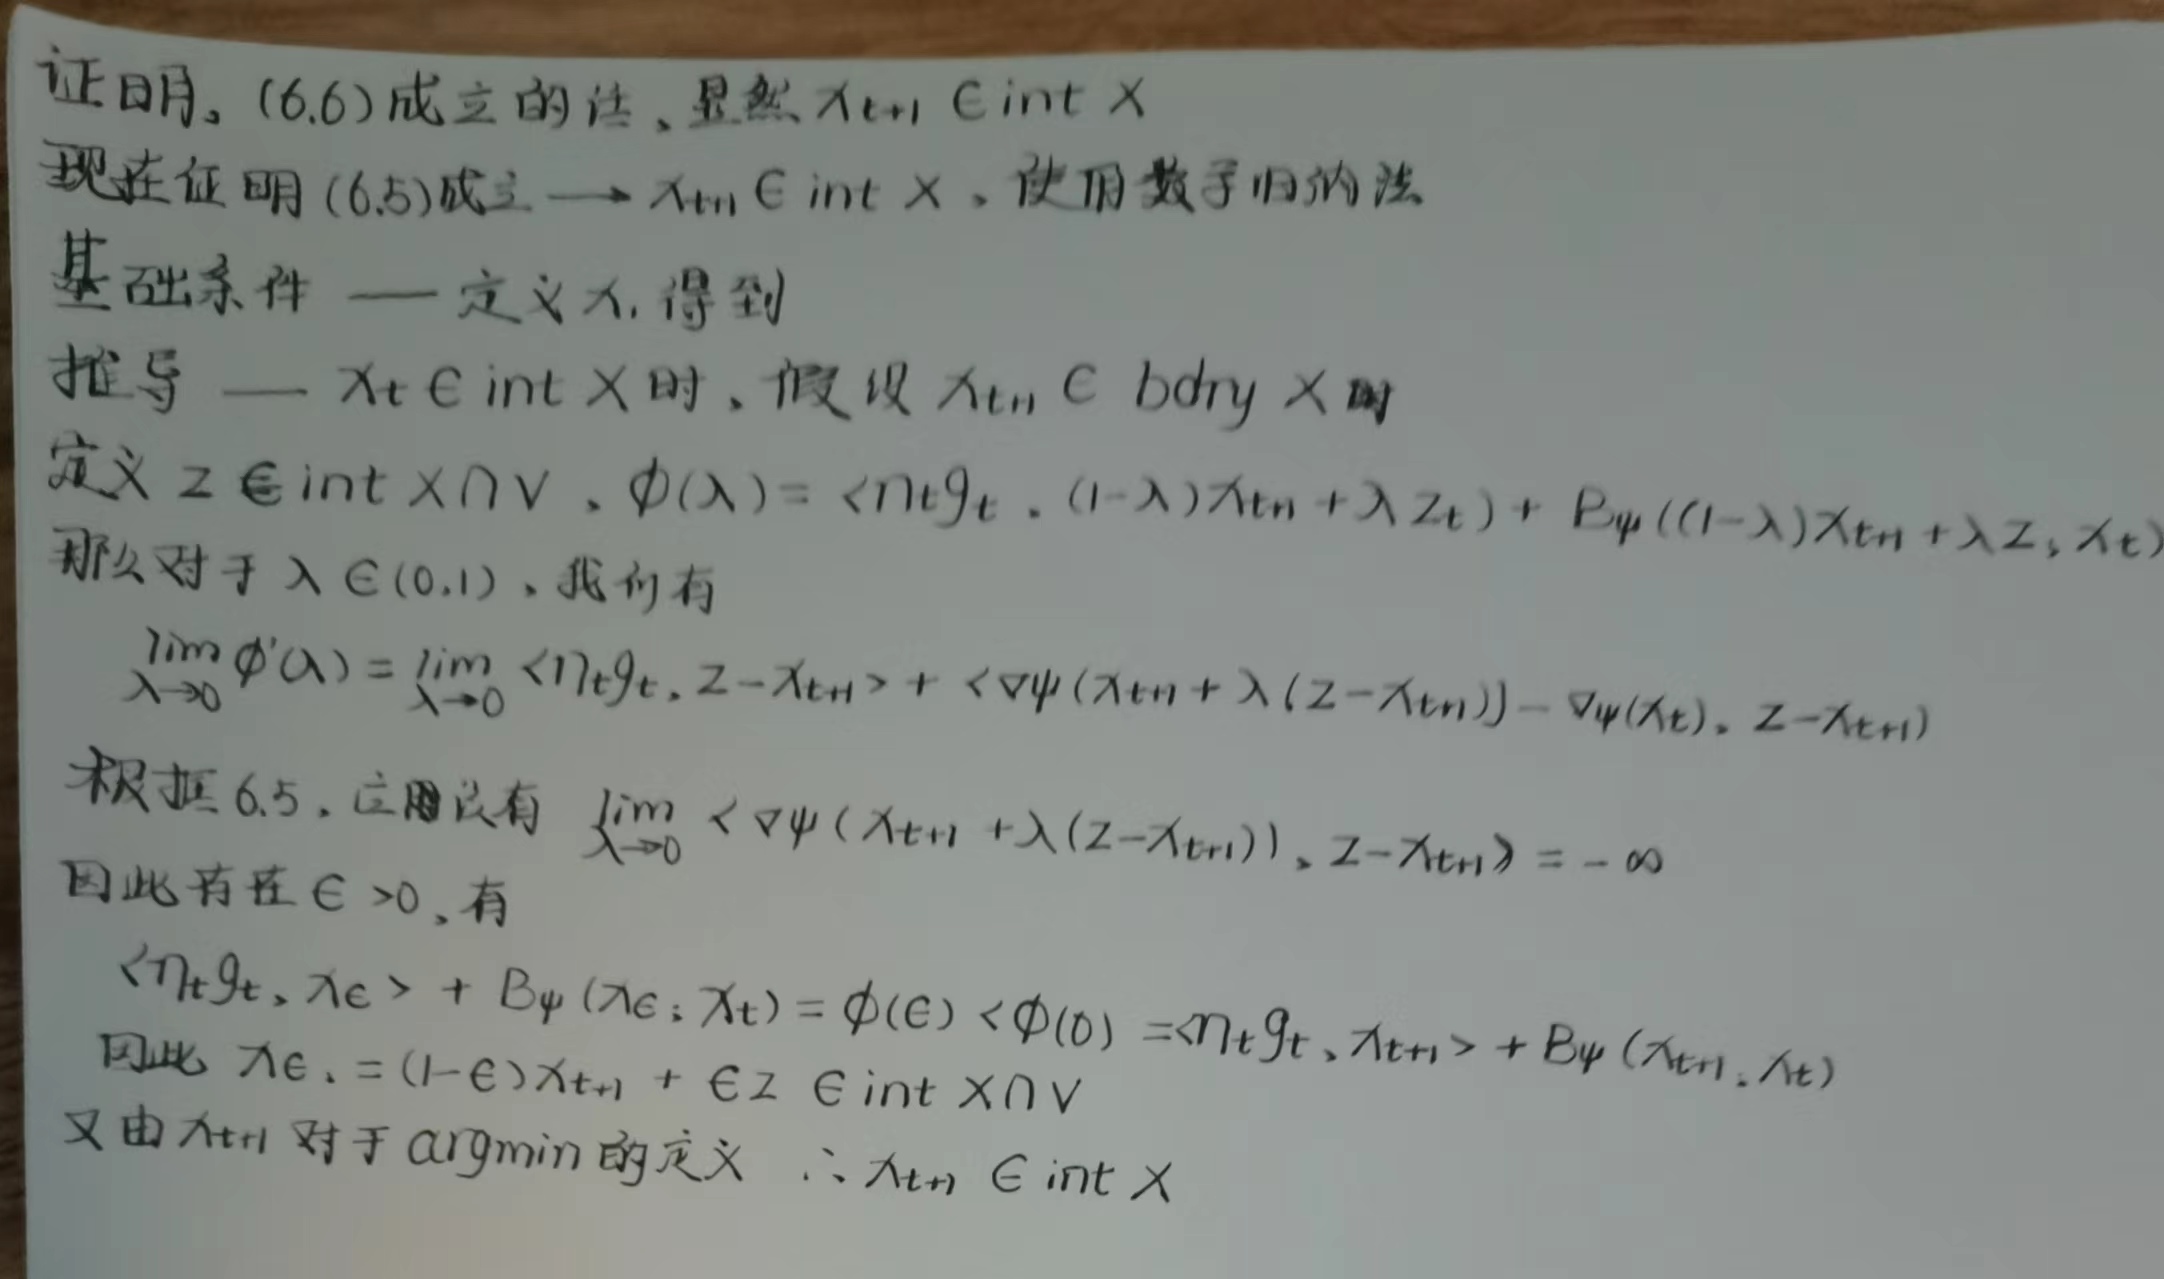 证明。(6.6)成立的话、显然 x_{t+1} ∈ int X
现在证明(6.5)成立 → x_{t+1} ∈ int X 、使用数学归纳法
基础条件 — 定义 x₁ 得到
推导 — x_t ∈ int X 时、假设 x_{t+1} ∈ bdry X 时
定义 z ∈ int X∩V 、ϕ(λ) = <η_t g_t , (1-λ)x_{t+1} + λz_t) + B_ψ((1-λ)x_{t+1} + λz; x_t)
那么对于 λ ∈ (0,1) 、我们有
lim_{λ→0} ϕ'(λ) = lim_{λ→0} <η_t g_t, z-x_{t+1}> + <∇ψ(x_{t+1} + λ(z-x_{t+1})) - ∇ψ(x_t), z-x_{t+1})
根据6.5, 应用设有 lim_{λ→0} <∇ψ(x_{t+1} + λ(z-x_{t+1})), z-x_{t+1}> = -∞
因此存在 ϵ >0、有
<η_t g_t, x_ϵ> + B_ψ(x_ϵ; x_t) = ϕ(ϵ) < ϕ(0) = <η_t g_t, x_{t+1}> + B_ψ(x_{t+1}, x_t)
因此 x_ϵ. = (1-ϵ)x_{t+1} + ϵz ∈ int X∩V
又由 x_{t+1} 对于 argmin 的定义 ∴ x_{t+1} ∈ int X